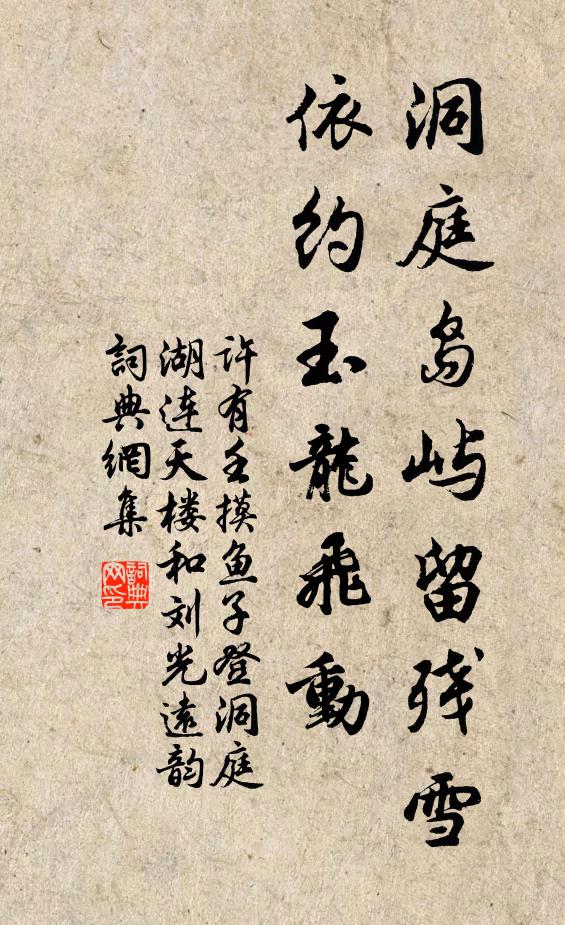 洞庭岛屿留残雪
依约玉龍飛動
许有壬摸鱼子登洞庭
湖連天楼和刘光遠韵
詞典網集
詞典網印